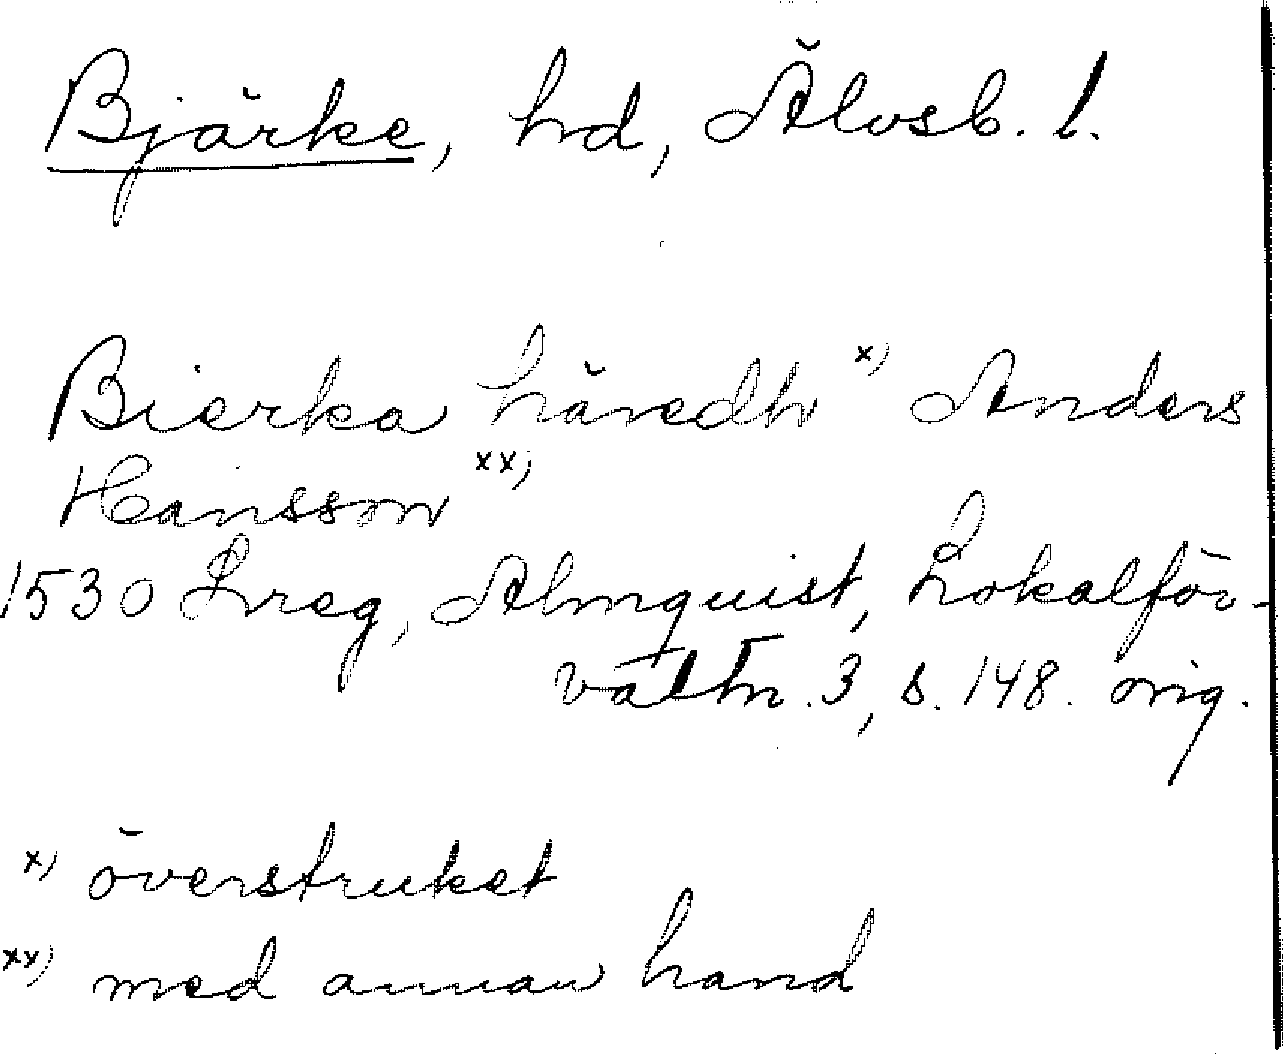 Bjärke, hd, Älvsb. l.
Bierka häredh x) Anders
Hansson xx)
1530 Lreg, Almquist, Lokalför-
valtn. 3, s. 148. orig.
x) överstruket
xx) med annan hand